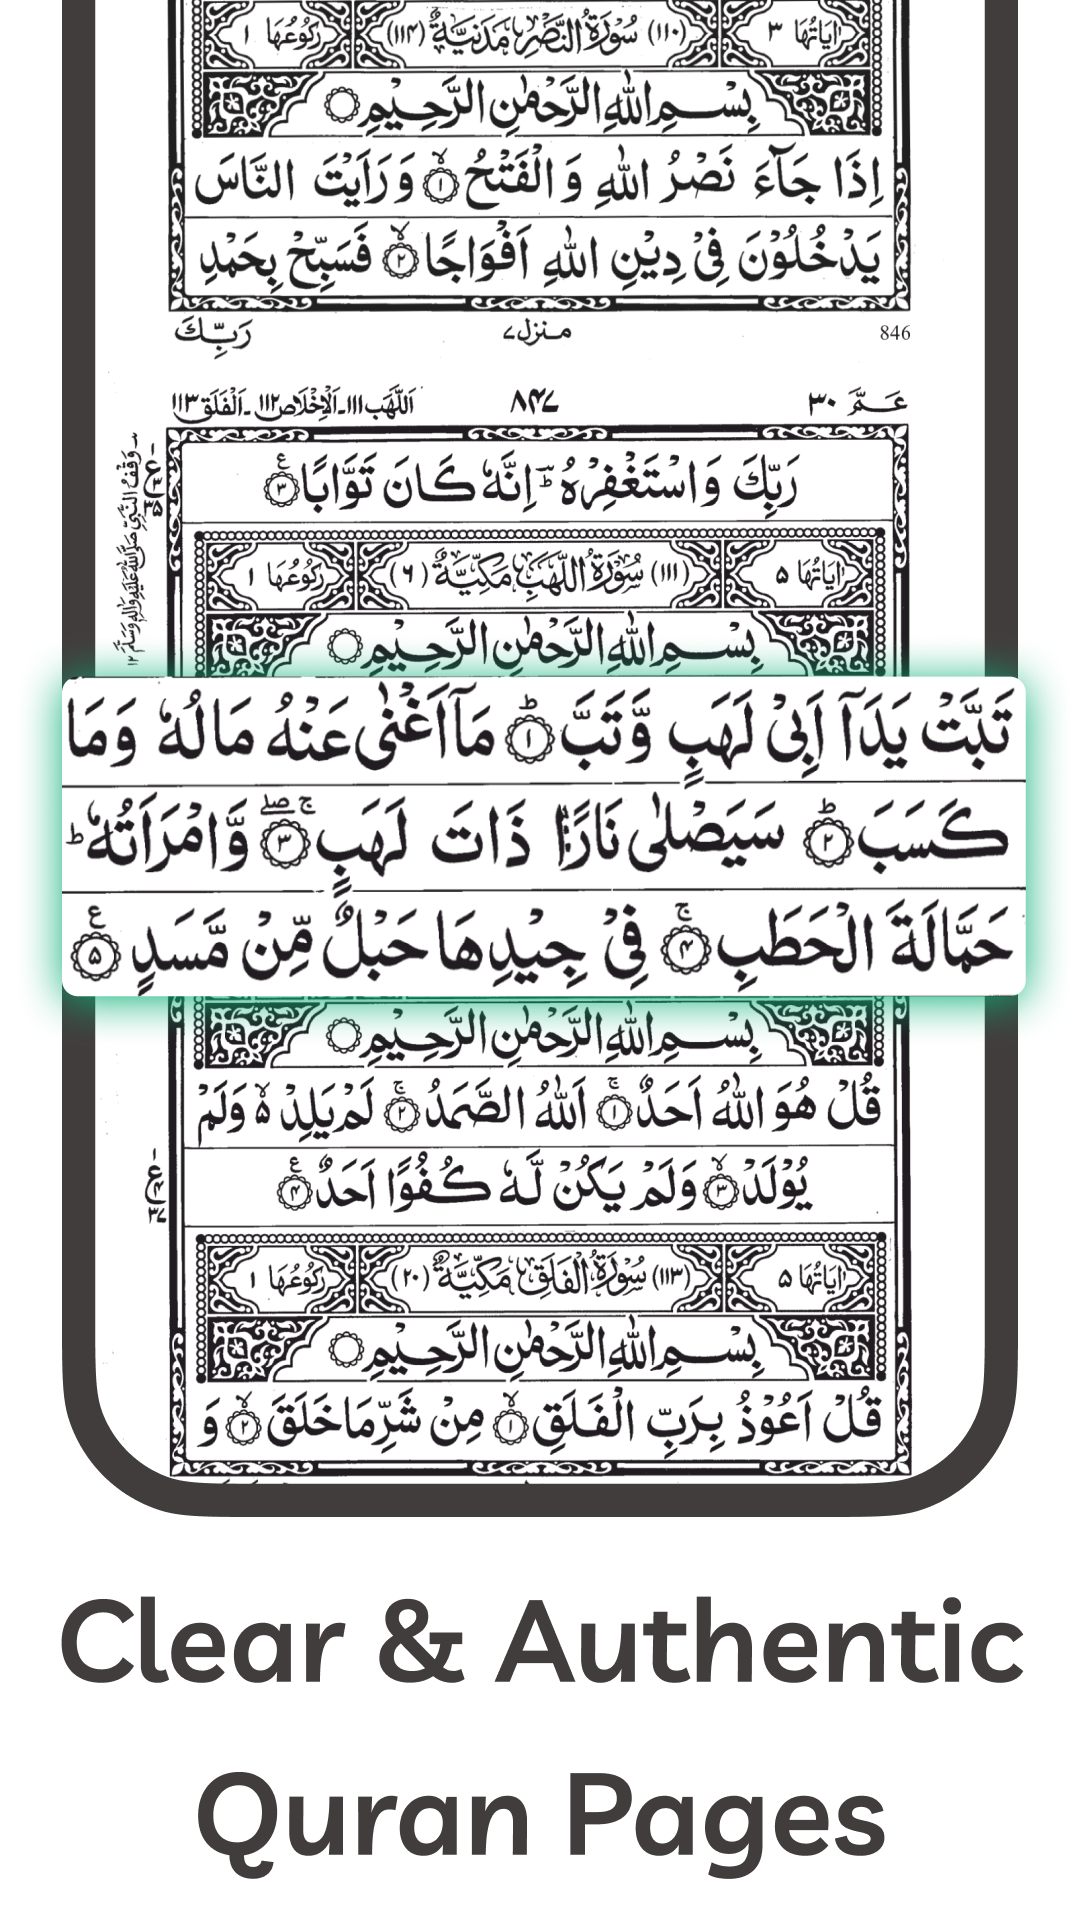 اٰيَاتُهَا ٣ (١١٠) سُوْرَةُ النَّصْرِ مَدَنِيَّةٌ (١١٤) رُكُوْعُهَا ١
بِسْمِ اللّٰهِ الرَّحْمٰنِ الرَّحِيْمِ ۝
اِذَا جَآءَ نَصْرُ اللّٰهِ وَ الْفَتْحُ ۙ﴿١﴾ وَ رَاَيْتَ النَّاسَ
يَدْخُلُوْنَ فِيْ دِيْنِ اللّٰهِ اَفْوَاجًا ۙ﴿٢﴾ فَسَبِّحْ بِحَمْدِ
846 منزل ٧ رَبِّكَ
عَمَّ ٣٠ ٨٤٧ اَللَّهَب ١١١۔اَلْاِخْلَاص ١١٢۔اَلْفَلَق ١١٣
رَبِّكَ وَ اسْتَغْفِرْهُ ؔؕ اِنَّهٗ كَانَ تَوَّابًا ﴿٣﴾ ع
وَقْفُ النَّبِيِّ صَلَّى اللّٰهُ عَلَيْهِ وَاٰلِهٖ وَسَلَّمَ ١٢
اٰيَاتُهَا ٥ (١١١) سُوْرَةُ اللَّهَبِ مَكِّيَّةٌ (٦) رُكُوْعُهَا ١
بِسْمِ اللّٰهِ الرَّحْمٰنِ الرَّحِيْمِ ۝
تَبَّتْ يَدَآ اَبِيْ لَهَبٍ وَّ تَبَّ ؕ﴿١﴾ مَاۤ اَغْنٰى عَنْهُ مَالُهٗ وَ مَا
كَسَبَ ؕ﴿٢﴾ سَيَصْلٰى نَارًا ذَاتَ لَهَبٍ ۚۖ﴿٣﴾ وَّ امْرَاَتُهٗ ؕ
حَمَّالَةَ الْحَطَبِ ۚ﴿٤﴾ فِيْ جِيْدِهَا حَبْلٌ مِّنْ مَّسَدٍ ﴿٥﴾ ع
بِسْمِ اللّٰهِ الرَّحْمٰنِ الرَّحِيْمِ ۝
قُلْ هُوَ اللّٰهُ اَحَدٌ ۚ﴿١﴾ اَللّٰهُ الصَّمَدُ ۚ﴿٢﴾ لَمْ يَلِدْ ۙ۬ وَ لَمْ
يُوْلَدْ ۙ﴿٣﴾ وَ لَمْ يَكُنْ لَّهٗ كُفُوًا اَحَدٌ ﴿٤﴾ ع
اٰيَاتُهَا ٥ (١١٣) سُوْرَةُ الْفَلَقِ مَكِّيَّةٌ (٢٠) رُكُوْعُهَا ١
بِسْمِ اللّٰهِ الرَّحْمٰنِ الرَّحِيْمِ ۝
قُلْ اَعُوْذُ بِرَبِّ الْفَلَقِ ۙ﴿١﴾ مِنْ شَرِّ مَا خَلَقَ ۙ﴿٢﴾ وَ
Clear & Authentic
Quran Pages